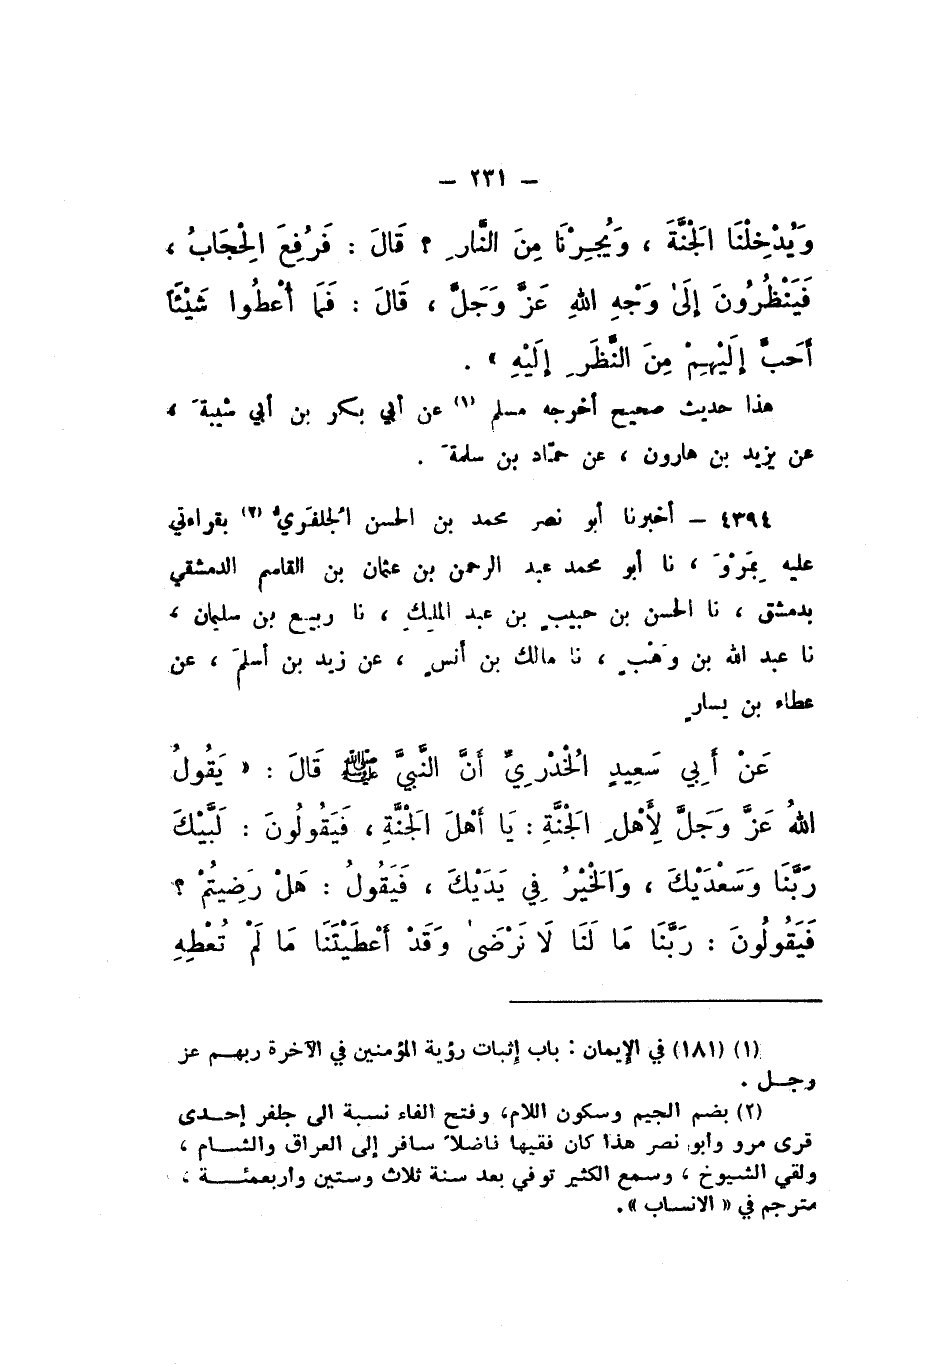 – ٢٣١ –
وَيُدْخِلْنَا الْجَنَّةَ ، وَيُجِرْنَا مِنَ النَّارِ ؟ قَالَ : فَرُفِعَ الْحِجَابُ ،
فَيَنْظُرُونَ إِلَىٰ وَجْهِ اللهِ عَزَّ وَجَلَّ ، قَالَ : فَمَا أُعْطُوا شَيْئًا
أَحَبَّ إِلَيْهِمْ مِنَ النَّظَرِ إِلَيْهِ » .
هذا حديث صحيح أخرجه مسلم (١) عن أبي بكر بن أبي شيبةَ ،
عن يزيد بن هارون ، عن حمّاد بن سلمةَ .
٤٣٩٤ – أخبرنا أبو نصر محمد بن الحسن الجُلفَري (٢) بقراءتي
عليه بِمَرْوَ ، نا أبو محمد عبد الرحمن بن عثمان بن القاسم الدمشقي
بدمشق ، نا الحسن بن حبيبٍ بن عبد الملِكِ ، نا ربيع بن سليمان ،
نا عبد الله بن وَهْبٍ ، نا مالك بن أنسٍ ، عن زيد بن أسلمَ ، عن
عطاء بن يسارٍ
عَنْ أَبِي سَعِيدٍ الْخُدْرِيِّ أَنَّ النَّبِيَّ ﷺ قَالَ : « يَقُولُ
اللهُ عَزَّ وَجَلَّ لِأَهْلِ الْجَنَّةِ : يَا أَهْلَ الْجَنَّةِ ، فَيَقُولُونَ : لَبَّيْكَ
رَبَّنَا وَسَعْدَيْكَ ، وَالْخَيْرُ فِي يَدَيْكَ ، فَيَقُولُ : هَلْ رَضِيتُمْ ؟
فَيَقُولُونَ : رَبَّنَا مَا لَنَا لَا نَرْضَىٰ وَقَدْ أَعْطَيْتَنَا مَا لَمْ تُعْطِهِ
(١) (١٨١) في الإيمان : باب إثبات رؤية المؤمنين في الآخرة ربهم عز
وجل .
(٢) بضم الجيم وسكون اللام، وفتح الفاء نسبة الى جلفر إحدى
قرى مرو وأبو نصر هذا كان فقيها فاضلاً سافر إلى العراق والشام ،
ولقي الشيوخ ، وسمع الكثير توفي بعد سنة ثلاث وستين وأربعمئة ،
مترجم في « الانساب » .